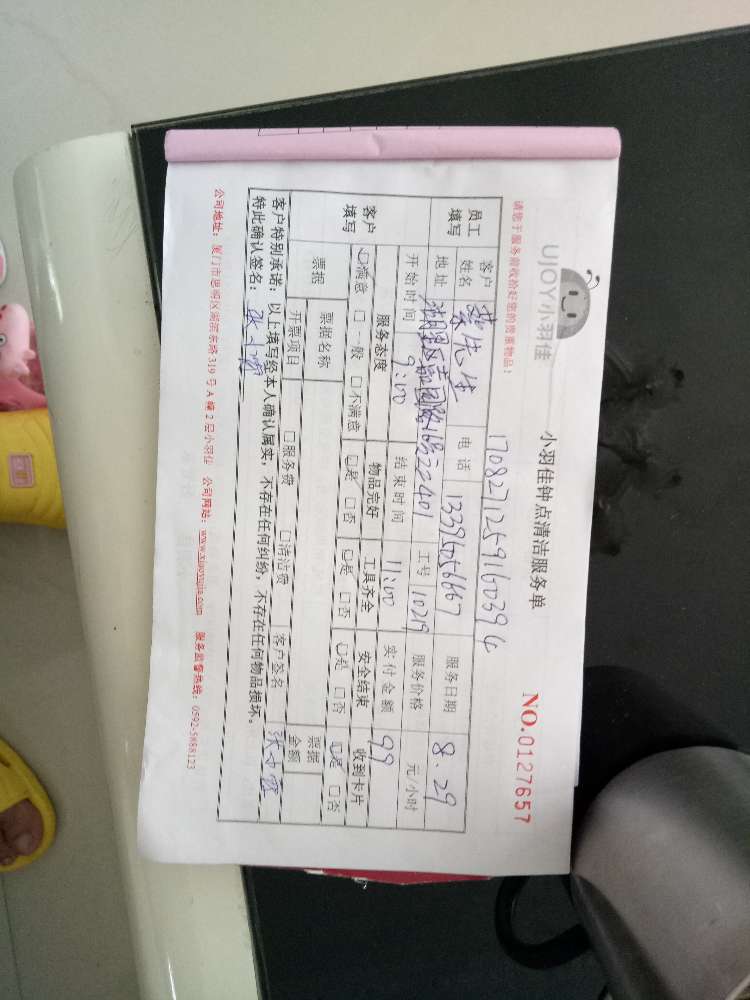 UJOY小羽佳
小羽佳钟点清洁服务单
NO.0127657
请您于服务前收拾好您的贵重物品!
1708271259160394
员工填写 客户姓名 蔡先生 电话 13395056667 服务日期 8.29
地址 湖里区 园路16号22401 工号 10219 服务价格 元/小时
开始时间 9:00 结束时间 11:00 实付金额 99
客户填写 服务态度 物品完好 工具齐全 安全结束 收到卡片
☑满意 □一般 □不满意 ☑是 □否 ☑是 □否 ☑是 □否 ☑是 □否
票据 票据名称 票据金额
开票项目 □服务费 □清洁费 客户签名
客户特别承诺:以上填写经本人确认属实,不存在任何纠纷,不存在任何物品损坏。
特此确认签名:
公司地址:厦门市思明区湖滨东路319号A幢2层小羽佳 公司网站:www.xiaoyujia.com 服务监督热线:0592-5888123